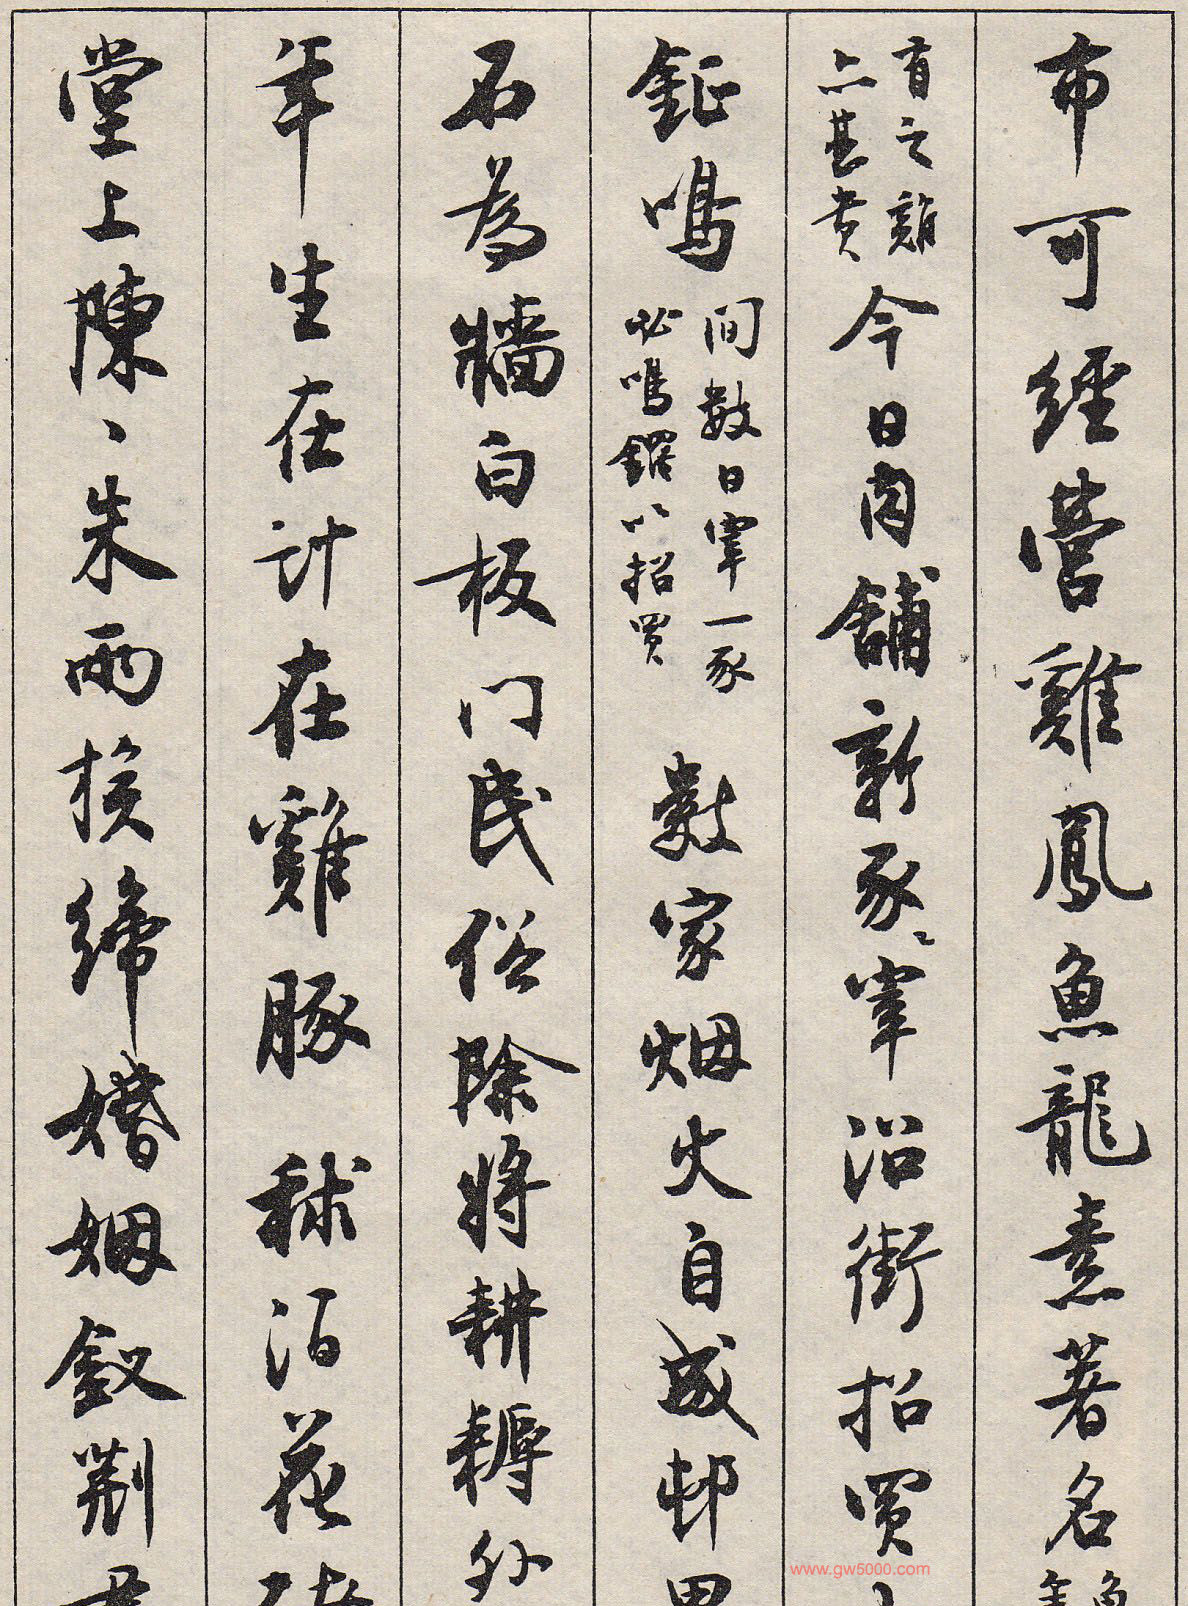 布可經營雞鳳魚龍素著名
有之雞
亦甚貴
今日肉鋪新豕〻宰沿街招買
鉦鳴
間數日宰一豕
必鳴鑼以招買
數家烟火自成邨
石為牆白板門民俗除將耕耨外
年生在計在雞豚 秫酒花
堂上陳〻朱兩族締婚姻釵荆
www.gw5000.com